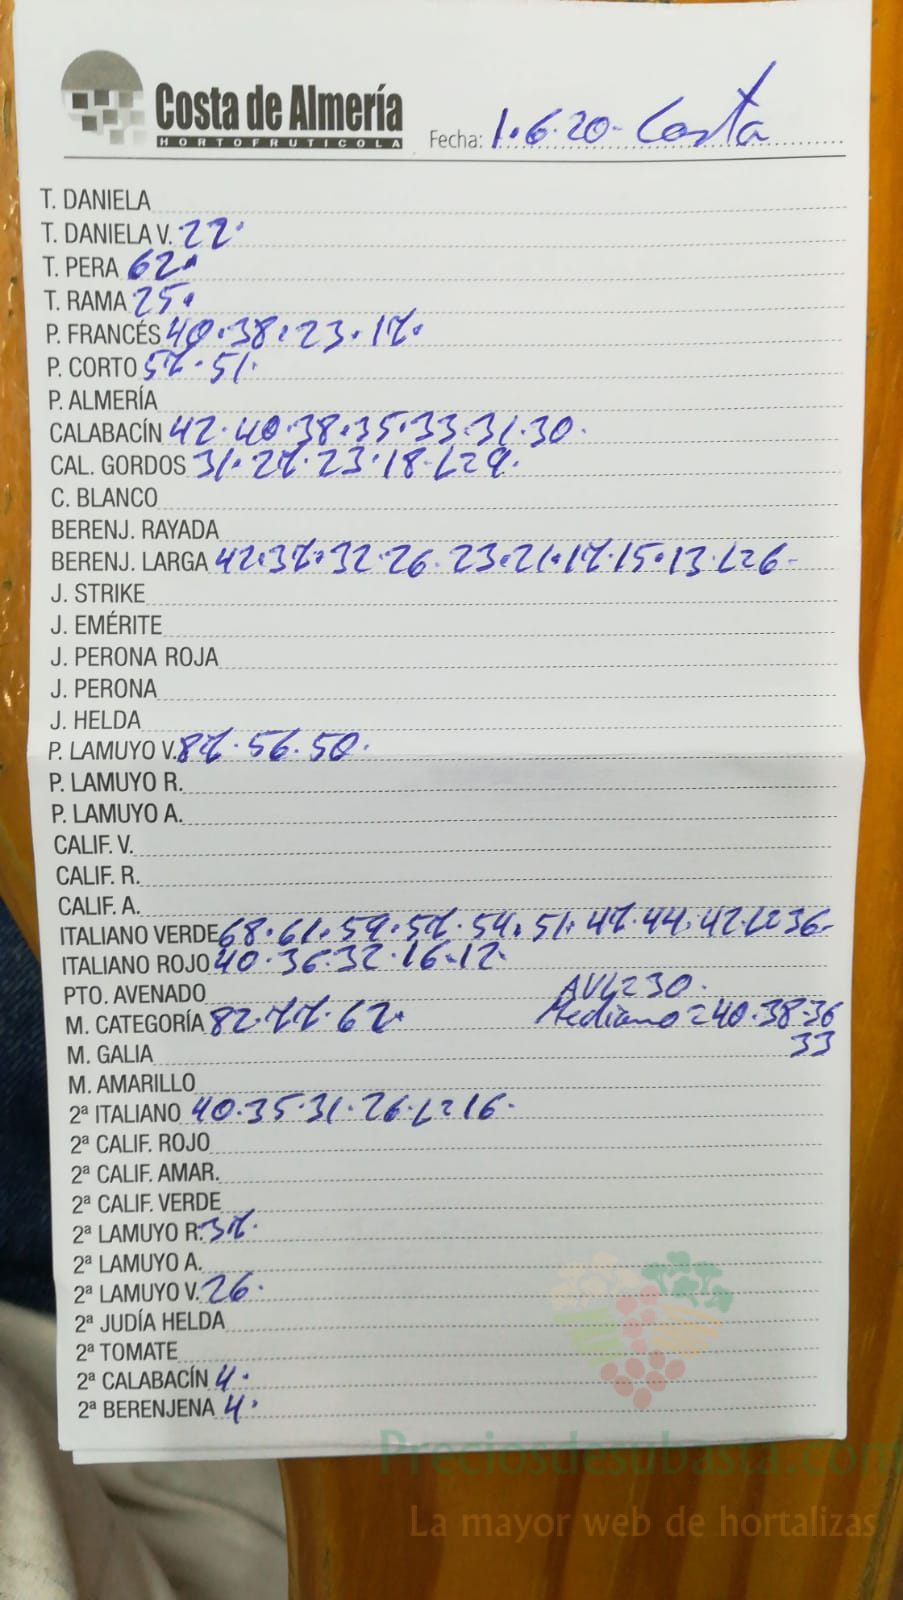 Costa de Almería
HORTOFRUTICOLA
Fecha: 1.6.20- Costa
T. DANIELA
T. DANIELA V. 22.
T. PERA 62.
T. RAMA 25.
P. FRANCÉS 40.38.23.17.
P. CORTO 57.51.
P. ALMERÍA
CALABACÍN 42.40.38.35.33.31.30.
CAL. GORDOS 31.27.23.18.L=9.
C. BLANCO
BERENJ. RAYADA
BERENJ. LARGA 42.37.32.26.23.21.17.15.13.L=6-
J. STRIKE
J. EMÉRITE
J. PERONA ROJA
J. PERONA
J. HELDA
P. LAMUYO V. 87.56.50.
P. LAMUYO R.
P. LAMUYO A.
CALIF. V.
CALIF. R.
CALIF. A.
ITALIANO VERDE 68.61.59.57.54.51.47.44.42.L=36-
ITALIANO ROJO 40.36.32.16.12.
PTO. AVENADO AVL=30.
M. CATEGORÍA 82.77.62. Mediano=40.38.36
M. GALIA 33
M. AMARILLO
2ª ITALIANO 40.35.31.26.L=16.
2ª CALIF. ROJO
2ª CALIF. AMAR.
2ª CALIF. VERDE
2ª LAMUYO R. 37.
2ª LAMUYO A.
2ª LAMUYO V. 26.
2ª JUDÍA HELDA
2ª TOMATE
2ª CALABACÍN 4.
2ª BERENJENA 4.
Preciosdesubasta.com
La mayor web de hortalizas